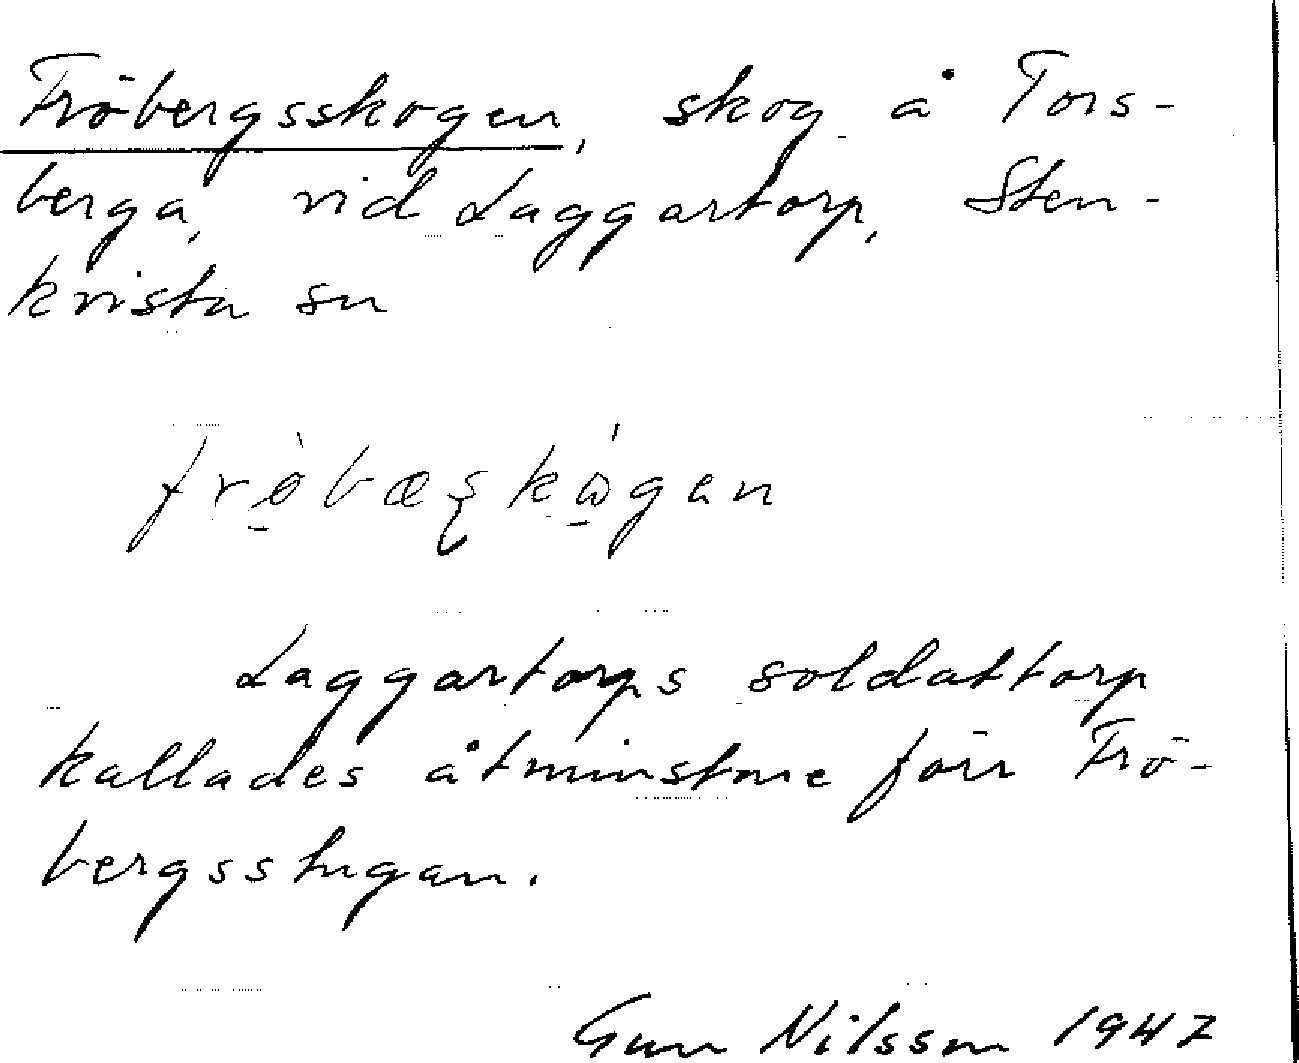 Fröbergsskogen, skog å Tors-
berga, vid Laggartorp, Sten-
kvista sn
frö̀bæʂkɷ́gan
Laggartorps soldattorp
kallades åtminstone förr Frö-
bergsstugan.
Gun Nilsson 1947